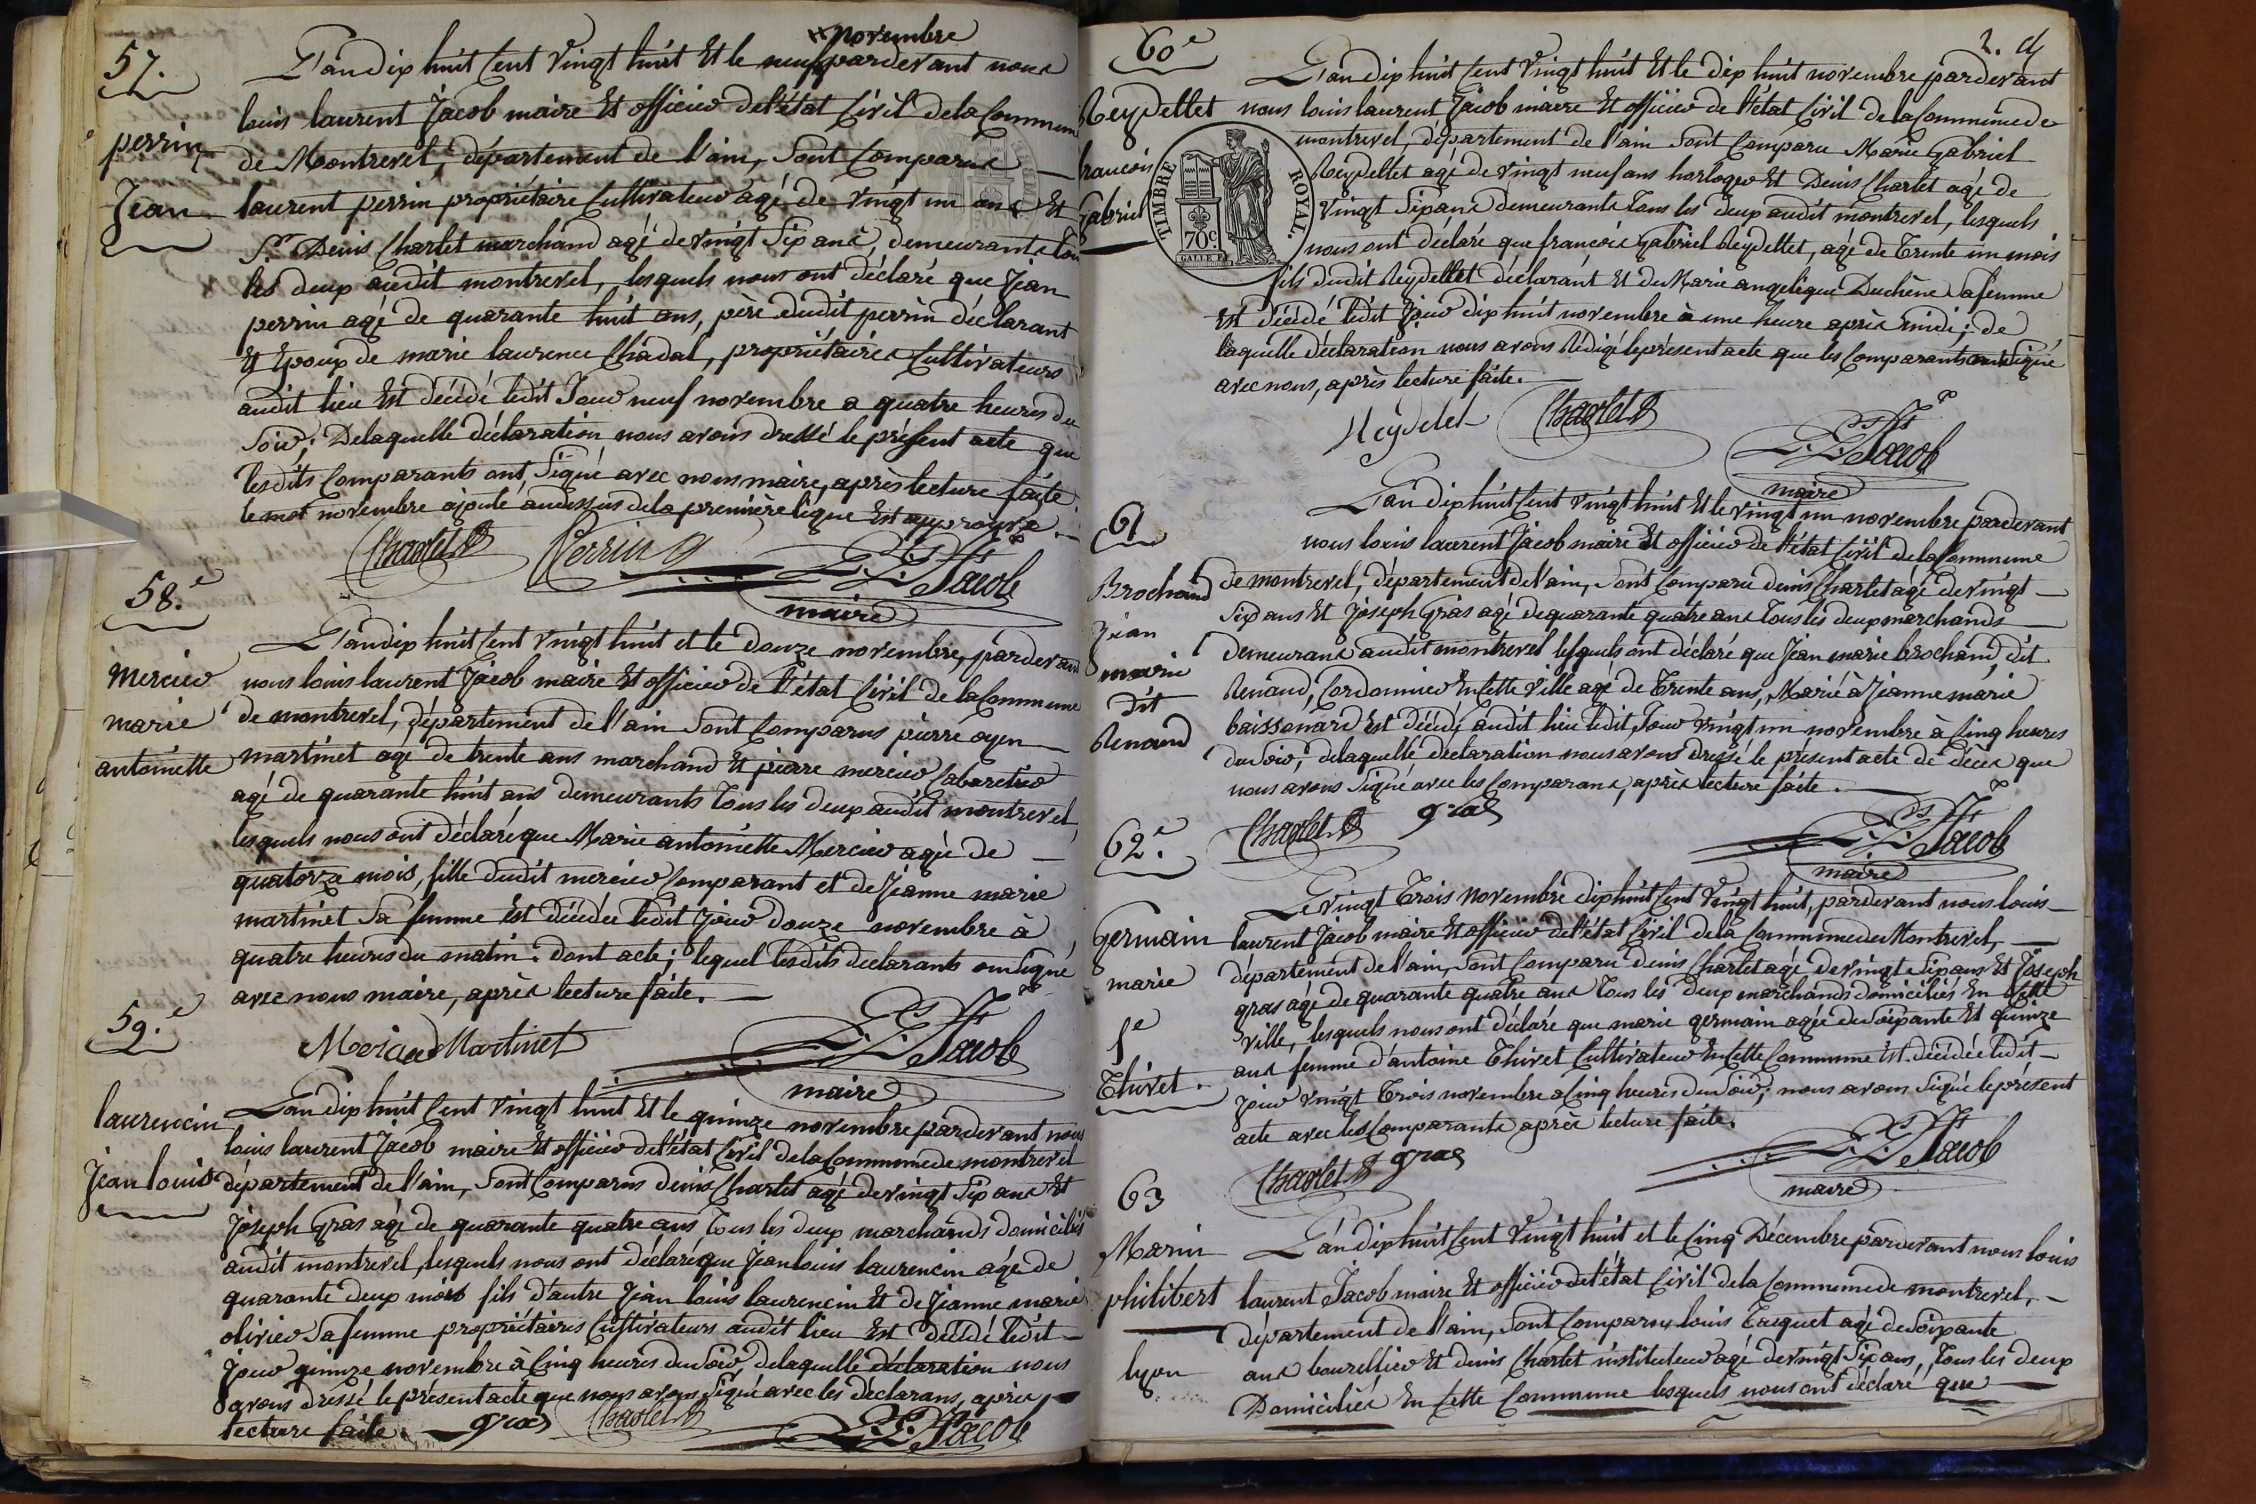 57.
perrin
Jean
× novembre
L'an dix huit cent vingt huit Et le neuf pardevant nous
louis laurent Jacob maire Et officier de l'état Civil de la Commune
de Montrevel, département de l'ain, sont Comparus
laurent perrin propriétaire Cultivateur agé de vingt un ans Et
Sr. Denis Charlet marchand agé de vingt Six ans, demeurants Tous
les deux audit montrevel, lesquels nous ont déclaré que Jean
perrin agé de quarante huit ans, père dudit perrin déclarant
Et Epoux de marie laurence Chadal, propriétaires Cultivateurs
audit lieu Est décédé ledit Jour neuf novembre a quatre heures du
Soir; De laquelle déclaration nous avons dressé le présent acte que
lesdits Comparants ont Signé avec nous maire, après lecture faite
le mot novembre ajouté audessus de la première ligne Est approuvé.
Charlet Perrin L.L. Jacob
maire
58.e
mercier
marie
antoinette
L'an dix huit Cent vingt huit et le douze novembre, pardevant
nous louis laurent Jacob maire Et officier de l'état Civil de la Commune
de montrevel, département de l'ain sont Comparus pierre oyen
martinet agé de trente ans marchand Et pierre mercier Cabaretier
agé de quarante huit ans demeurants Tous les deux audit montrevel,
lesquels nous ont déclaré que Marie antoinette Mercier agée de
quatorze mois, fille dudit mercier Comparant et de Jeanne marie
martinet Sa femme Est décédée ledit Jour douze novembre à
quatre heures du matin. Dont acte; lequel lesdits declarants ont Signé
avec nous maire, après lecture faite.
Mercier Martinet L.L. Jacob
maire
59.e
laurencin
Jean louis
L'an dix huit Cent vingt huit Et le quinze novembre pardevant nous
louis laurent Jacob maire Et officier de l'état Civil de la Commune de montrevel
département de l'ain, Sont Comparus denis Charlet agé de vingt Six ans Et
Joseph Gras agé de quarante quatre ans Tous les deux marchands domiciliés
audit montrevel, lesquels nous ont déclaré que Jean louis laurencin agé de
quarante deux mois fils d'autre Jean louis laurencin Et de Jeanne marie
olivier Sa femme propriétaires Cultivateurs audit lieu Est décédé ledit
Jour quinze novembre à Cinq heures du Soir, de laquelle déclaration nous
avons dressé le présent acte que nous avons Signé avec les déclarans, après
lecture faite. gras Charlet L.L. Jacob
60e
Reydellet
francois
Gabriel
TIMBRE ROYAL.
70c
L'an dix huit Cent vingt huit Et le dix huit novembre pardevant
nous louis laurent Jacob maire Et officier de l'état Civil de la Commune de
montrevel, département de l'ain sont Comparu Marie Gabriel
Reydellet agé de vingt neuf ans horloger Et Denis Charlet agé de
vingt Six ans demeurants Tous les deux audit montrevel, lesquels
nous ont déclaré que françois Gabriel Reydellet, agé de Trente un mois
fils dudit Reydellet déclarant Et de Marie angelique Duchêne Sa femme
Est décédé ledit Jour dix huit novembre à une heure après midi; de
laquelle déclaration nous avons Rédigé le présent acte que les Comparants ont Signé
avec nous, après lecture faite.
Reydelet Charlet L.L. Jacob
maire
61
Brochand
Jean
marie
dit
Renaud
L'an dix huit Cent vingt huit Et le vingt un novembre pardevant
nous louis laurent Jacob maire Et officier de l'état Civil de la Commune
de montrevel, département de l'ain, sont Comparu denis Charlet agé de vingt
Six ans Et Joseph Gras agé de quarante quatre ans Tous les deux marchands
demeurans audit montrevel lesquels ont déclaré que Jean marie brochand, dit
Renaud, Cordonnier En Cette ville agé de Trente ans, Marié à Jeanne marie
baissonard Est décédé audit lieu ledit Jour vingt un novembre à Cinq heures
du Soir, de laquelle déclaration nous avons dressé le présent acte de décès que
nous avons Signé avec les Comparans, après lecture faite.
Charlet gras L.L. Jacob
maire
62e.
Germain
marie
fe
Thivet.
Le vingt Trois Novembre dix huit Cent vingt huit, pardevant nous louis
laurent Jacob maire Et officier de l'état Civil de la Commune de Montrevel,
département de l'ain, sont Comparu denis Charlet agé de vingt Six ans Et Joseph
gras agé de quarante quatre ans Tous les deux marchands domiciliés En Cette
ville, lesquels nous ont déclaré que marie germain agée de Soixante Et quinze
ans femme d'antoine Thivet Cultivateur En Cette Commune Est décédée ledit
jour vingt Trois novembre a Cinq heures du Soir; nous avons Signé le présent
acte avec les Comparants après lecture faite.
Charlet gras L.L. Jacob
maire
63
Marin
philibert
lyon
L'an dix huit Cent vingt huit et le Cinq Décembre pardevant nous louis
laurent Jacob maire Et officier de l'état Civil de la Commune de montrevel,
département de l'ain, Sont Comparus louis Tacquet agé de Soixante
ans bourellier Et denis Charlet instituteur agé de vingt Six ans, Tous les deux
Domiciliés En Cette Commune lesquels nous ont déclaré que